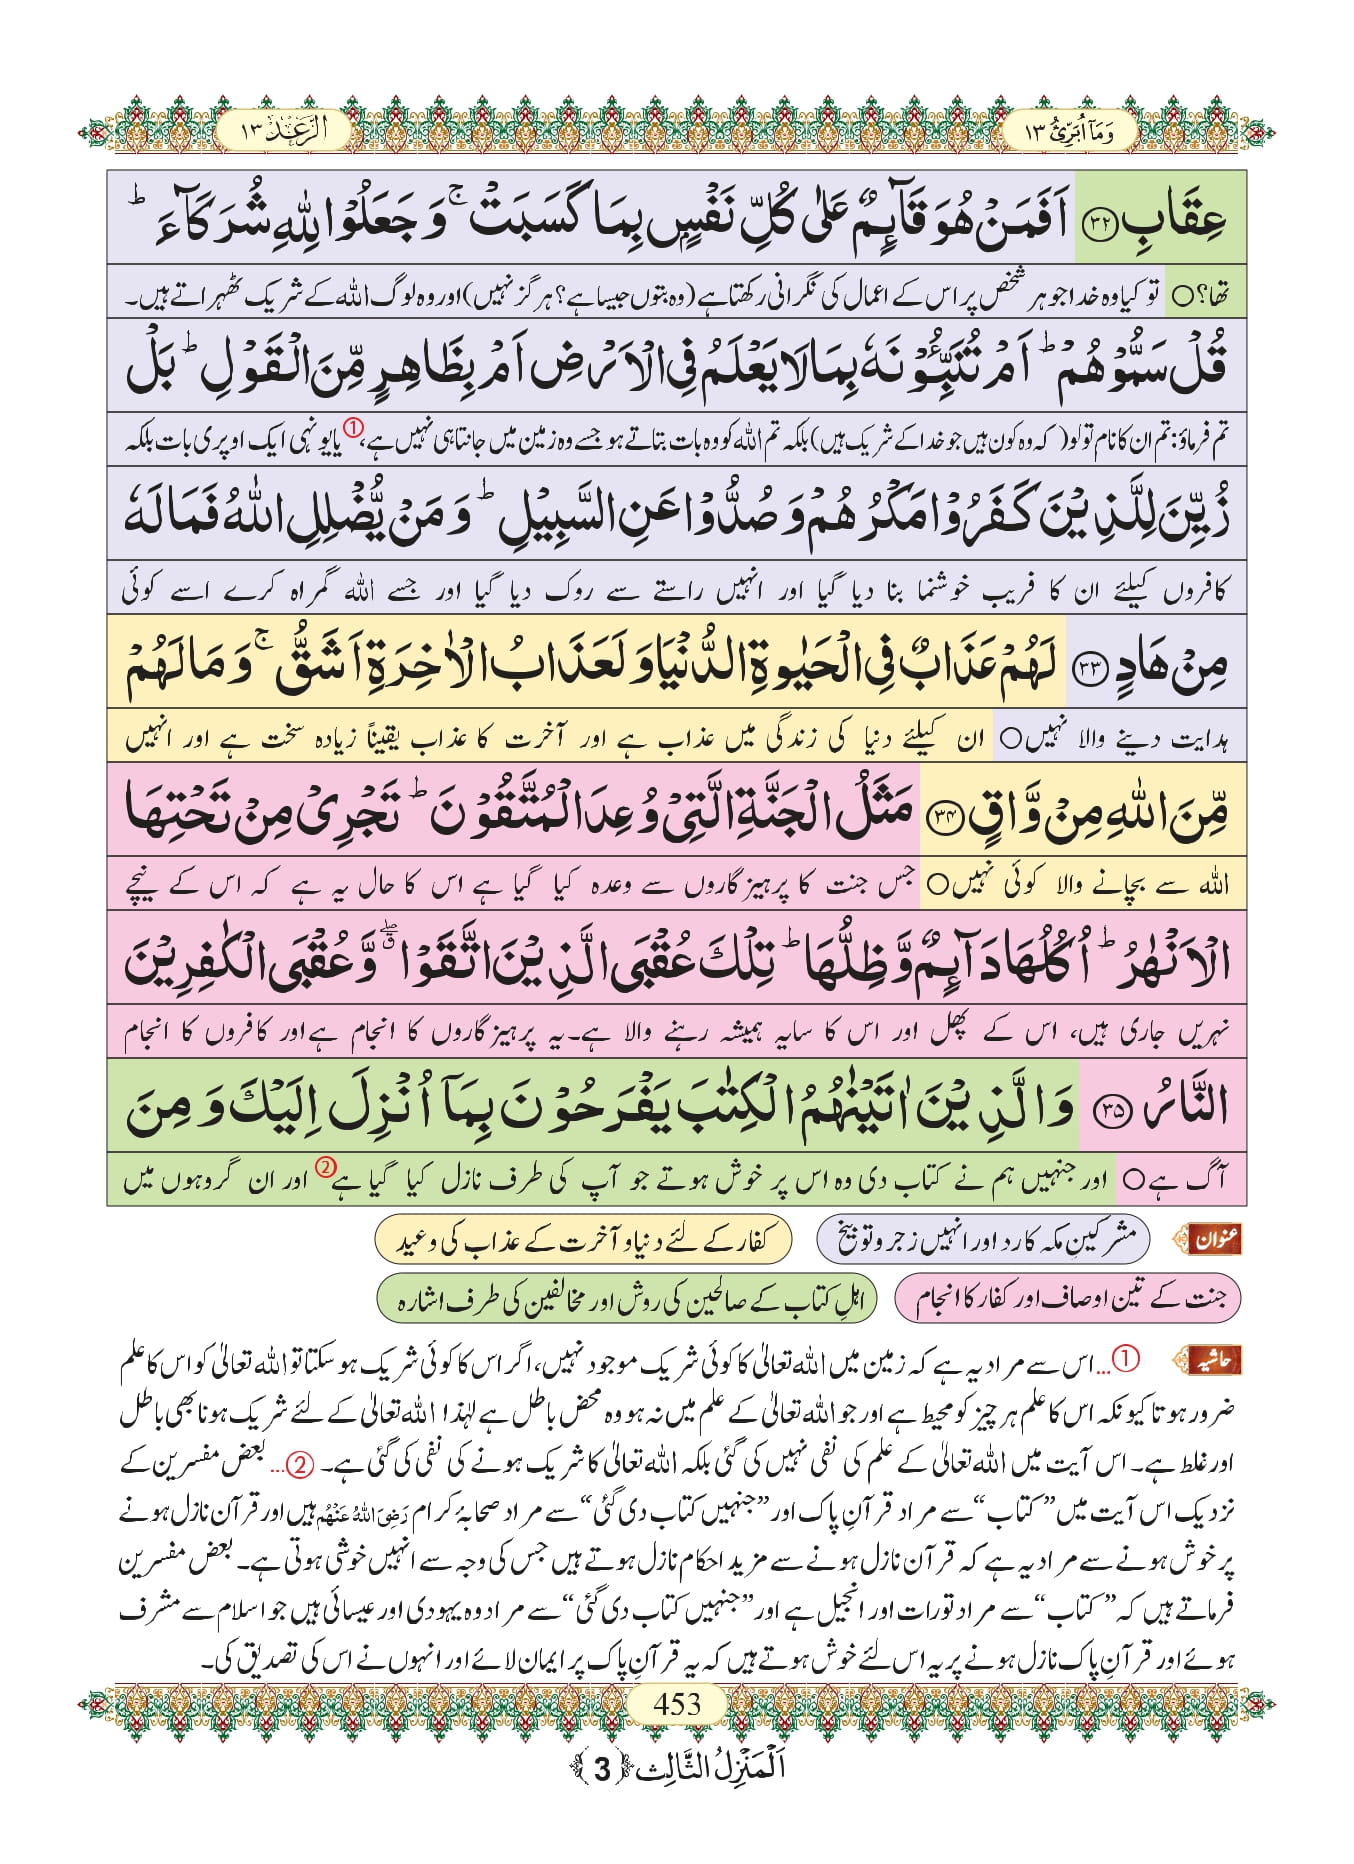 وَمَاۤ اُبَرِّئُ ١٣
الرَّعْد ١٣
عِقَابِ ﴿۳۲﴾ اَفَمَنْ هُوَ قَآىِٕمٌ عَلٰى كُلِّ نَفْسٍۭ بِمَا كَسَبَتْۚ وَ جَعَلُوْا لِلّٰهِ شُرَكَآءَؕ
تھا؟○ تو کیا وہ خدا جو ہر شخص پر اس کے اعمال کی نگرانی رکھتا ہے (وہ بتوں جیسا ہے؟ ہرگز نہیں) اور وہ لوگ اللہ کے شریک ٹھہراتے ہیں۔
قُلْ سَمُّوْهُمْؕ اَمْ تُنَبِّـُٔوْنَهٗ بِمَا لَا یَعْلَمُ فِی الْاَرْضِ اَمْ بِظَاهِرٍ مِّنَ الْقَوْلِؕ بَلْ
تم فرماؤ: تم ان کا نام تو لو (کہ وہ کون ہیں جو خدا کے شریک ہیں) بلکہ تم اللہ کو وہ بات بتاتے ہو جسے وہ زمین میں جانتا ہی نہیں ہے،① یا یونہی ایک اوپری بات بلکہ
زُیِّنَ لِلَّذِیْنَ كَفَرُوْا مَكْرُهُمْ وَ صُدُّوْا عَنِ السَّبِیْلِؕ وَ مَنْ یُّضْلِلِ اللّٰهُ فَمَا لَهٗ
کافروں کیلئے ان کا فریب خوشنما بنا دیا گیا اور انہیں راستے سے روک دیا گیا اور جسے اللہ گمراہ کرے اسے کوئی
مِنْ هَادٍ ﴿۳۳﴾ لَهُمْ عَذَابٌ فِی الْحَیٰوةِ الدُّنْیَا وَ لَعَذَابُ الْاٰخِرَةِ اَشَقُّۚ وَ مَا لَهُمْ
ہدایت دینے والا نہیں○ ان کیلئے دنیا کی زندگی میں عذاب ہے اور آخرت کا عذاب یقیناً زیادہ سخت ہے اور انہیں
مِّنَ اللّٰهِ مِنْ وَّاقٍ ﴿۳۴﴾ مَثَلُ الْجَنَّةِ الَّتِیْ وُعِدَ الْمُتَّقُوْنَؕ تَجْرِیْ مِنْ تَحْتِهَا
اللہ سے بچانے والا کوئی نہیں○ جس جنت کا پرہیزگاروں سے وعدہ کیا گیا ہے اس کا حال یہ ہے کہ اس کے نیچے
الْاَنْهٰرُؕ اُكُلُهَا دَآىِٕمٌ وَّ ظِلُّهَاؕ تِلْكَ عُقْبَى الَّذِیْنَ اتَّقَوْا ﳓ وَّ عُقْبَى الْكٰفِرِیْنَ
نہریں جاری ہیں، اس کے پھل اور اس کا سایہ ہمیشہ رہنے والا ہے۔ یہ پرہیزگاروں کا انجام ہے اور کافروں کا انجام
النَّارُ ﴿۳۵﴾ وَ الَّذِیْنَ اٰتَیْنٰهُمُ الْكِتٰبَ یَفْرَحُوْنَ بِمَاۤ اُنْزِلَ اِلَیْكَ وَ مِنَ
آگ ہے○ اور جنہیں ہم نے کتاب دی وہ اس پر خوش ہوتے جو آپ کی طرف نازل کیا گیا ہے② اور ان گروہوں میں
عنوان مشرکینِ مکہ کا رد اور انہیں زجر و توبیخ کفار کے لئے دنیا و آخرت کے عذاب کی وعید
جنت کے تین اوصاف اور کفار کا انجام اہلِ کتاب کے صالحین کی روش اور مخالفین کی طرف اشارہ
حاشیہ ①... اس سے مراد یہ ہے کہ زمین میں اللہ تعالیٰ کا کوئی شریک موجود نہیں، اگر اس کا کوئی شریک ہو سکتا تو اللہ تعالیٰ کو اس کا علم
ضرور ہوتا کیونکہ اس کا علم ہر چیز کو محیط ہے اور جو اللہ تعالیٰ کے علم میں نہ ہو وہ محض باطل ہے لہٰذا اللہ تعالیٰ کے لئے شریک ہونا بھی باطل
اور غلط ہے۔ اس آیت میں اللہ تعالیٰ کے علم کی نفی نہیں کی گئی بلکہ اللہ تعالیٰ کا شریک ہونے کی نفی کی گئی ہے۔ ②... بعض مفسرین کے
نزدیک اس آیت میں ”کتاب“ سے مراد قرآنِ پاک اور ”جنہیں کتاب دی گئی“ سے مراد صحابۂ کرام رَضِیَ اللّٰهُ عَنْهُمْ ہیں اور قرآن نازل ہونے
پر خوش ہونے سے مراد یہ ہے کہ قرآن نازل ہونے سے مزید احکام نازل ہوتے ہیں جس کی وجہ سے انہیں خوشی ہوتی ہے۔ بعض مفسرین
فرماتے ہیں کہ ”کتاب“ سے مراد تورات اور انجیل ہے اور ”جنہیں کتاب دی گئی“ سے مراد وہ یہودی اور عیسائی ہیں جو اسلام سے مشرف
ہوئے اور قرآنِ پاک نازل ہونے پر یہ اس لئے خوش ہوتے ہیں کہ یہ قرآنِ پاک پر ایمان لائے اور انہوں نے اس کی تصدیق کی۔
453
اَلْمَنْزِلُ الثَّالِث ﴿3﴾